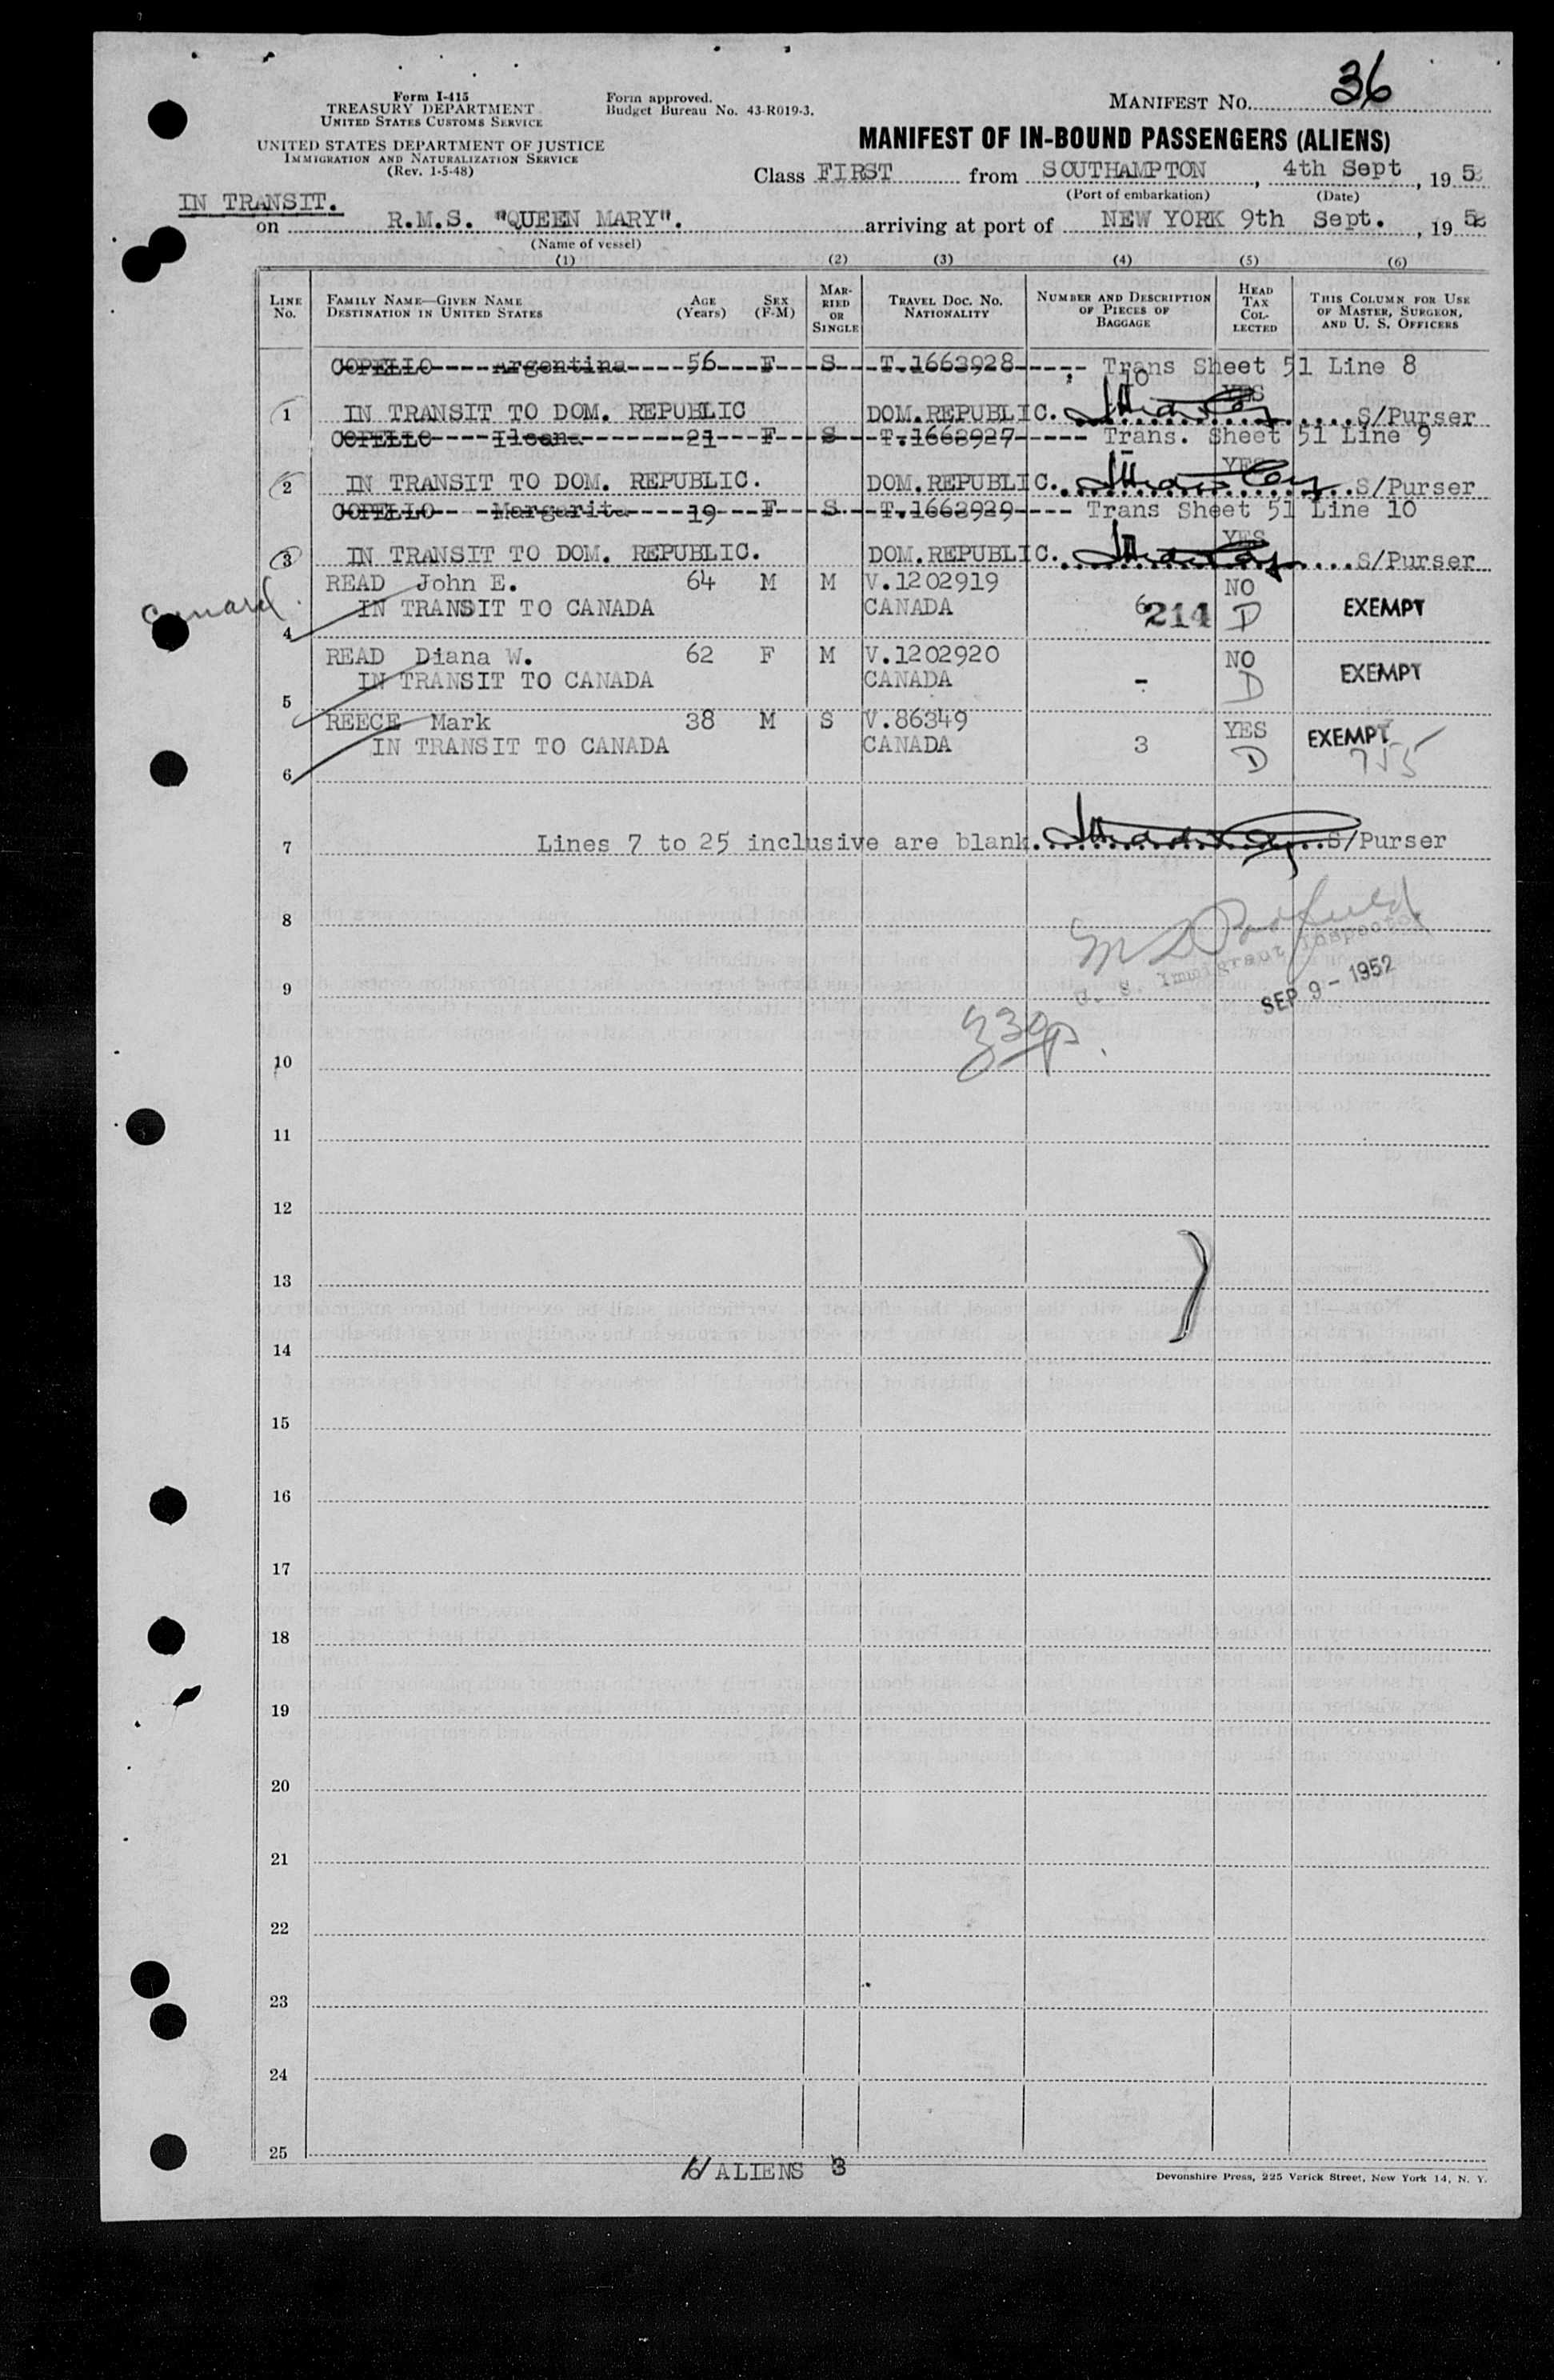 36
Form I-415
TREASURY DEPARTMENT
UNITED STATES CUSTOMS SERVICE
Form approved.
Budget Bureau No. 43-R019-3.
MANIFEST NO.
UNITED STATES DEPARTMENT OF JUSTICE
IMMIGRATION AND NATURALIZATION SERVICE
(Rev. 1-5-48)
MANIFEST OF IN-BOUND PASSENGERS (ALIENS)
Class FIRST from SOUTHAMPTON, 4th Sept, 195
(Port of embarkation) (Date)
IN TRANSIT.
on R.M.S. "QUEEN MARY". arriving at port of NEW YORK 9th Sept., 1952
(Name of vessel)
(1) (2) (3) (4) (5) (6)
LINE No. FAMILY NAME—GIVEN NAME DESTINATION IN UNITED STATES AGE (Years) SEX (F-M) MARRIED OR SINGLE TRAVEL DOC. No. NATIONALITY NUMBER AND DESCRIPTION OF PIECES OF BAGGAGE HEAD TAX COLLECTED THIS COLUMN FOR USE OF MASTER, SURGEON, AND U. S. OFFICERS
COPELLO----Argentina----56---F---S---T.1663928----- Trans Sheet 51 Line 8
10 YES
1 IN TRANSIT TO DOM. REPUBLIC DOM.REPUBLIC. S/Purser
COPELLO----Ileana-------21---F---S---T.1663927----- Trans. Sheet 51 Line 9
- YES
2 IN TRANSIT TO DOM. REPUBLIC. DOM.REPUBLIC. S/Purser
COPELLO----Margarita----19---F---S---T.1663929---- Trans Sheet 51 Line 10
YES
3 IN TRANSIT TO DOM. REPUBLIC. DOM.REPUBLIC. S/Purser
READ John E. 64 M M V.1202919 NO
Cunard IN TRANSIT TO CANADA CANADA 6 214 D EXEMPT
4
READ Diana W. 62 F M V.1202920 NO
IN TRANSIT TO CANADA CANADA - D EXEMPT
5
REECE Mark 38 M S V.86349 YES EXEMPT
IN TRANSIT TO CANADA CANADA 3 D 755
6
7 Lines 7 to 25 inclusive are blank. S/Purser
8
U. S. Immigrant Inspector
9 SEP 9 - 1952
330p.
10
11
12
13
14
15
16
17
18
19
20
21
22
23
24
25
ALIENS 3
Devonshire Press, 225 Varick Street, New York 14, N. Y.